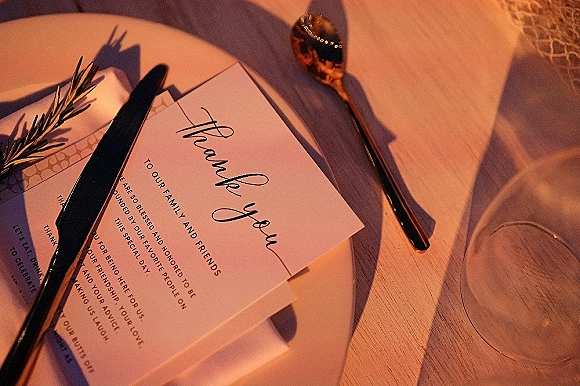 Thank you
TO OUR FAMILY AND FRIENDS
ARE SO BLESSED AND HONORED TO BE
BY OUR FAVORITE PEOPLE ON
THIS SPECIAL DAY
YOU FOR BEING HERE FOR US,
YOUR FRIENDSHIP, YOUR LOVE,
AND YOUR ADVICE,
MAKING US LAUGH.
LET'S EAT, DRINK
TO CELEBRATE
OUR BUTTS OFF